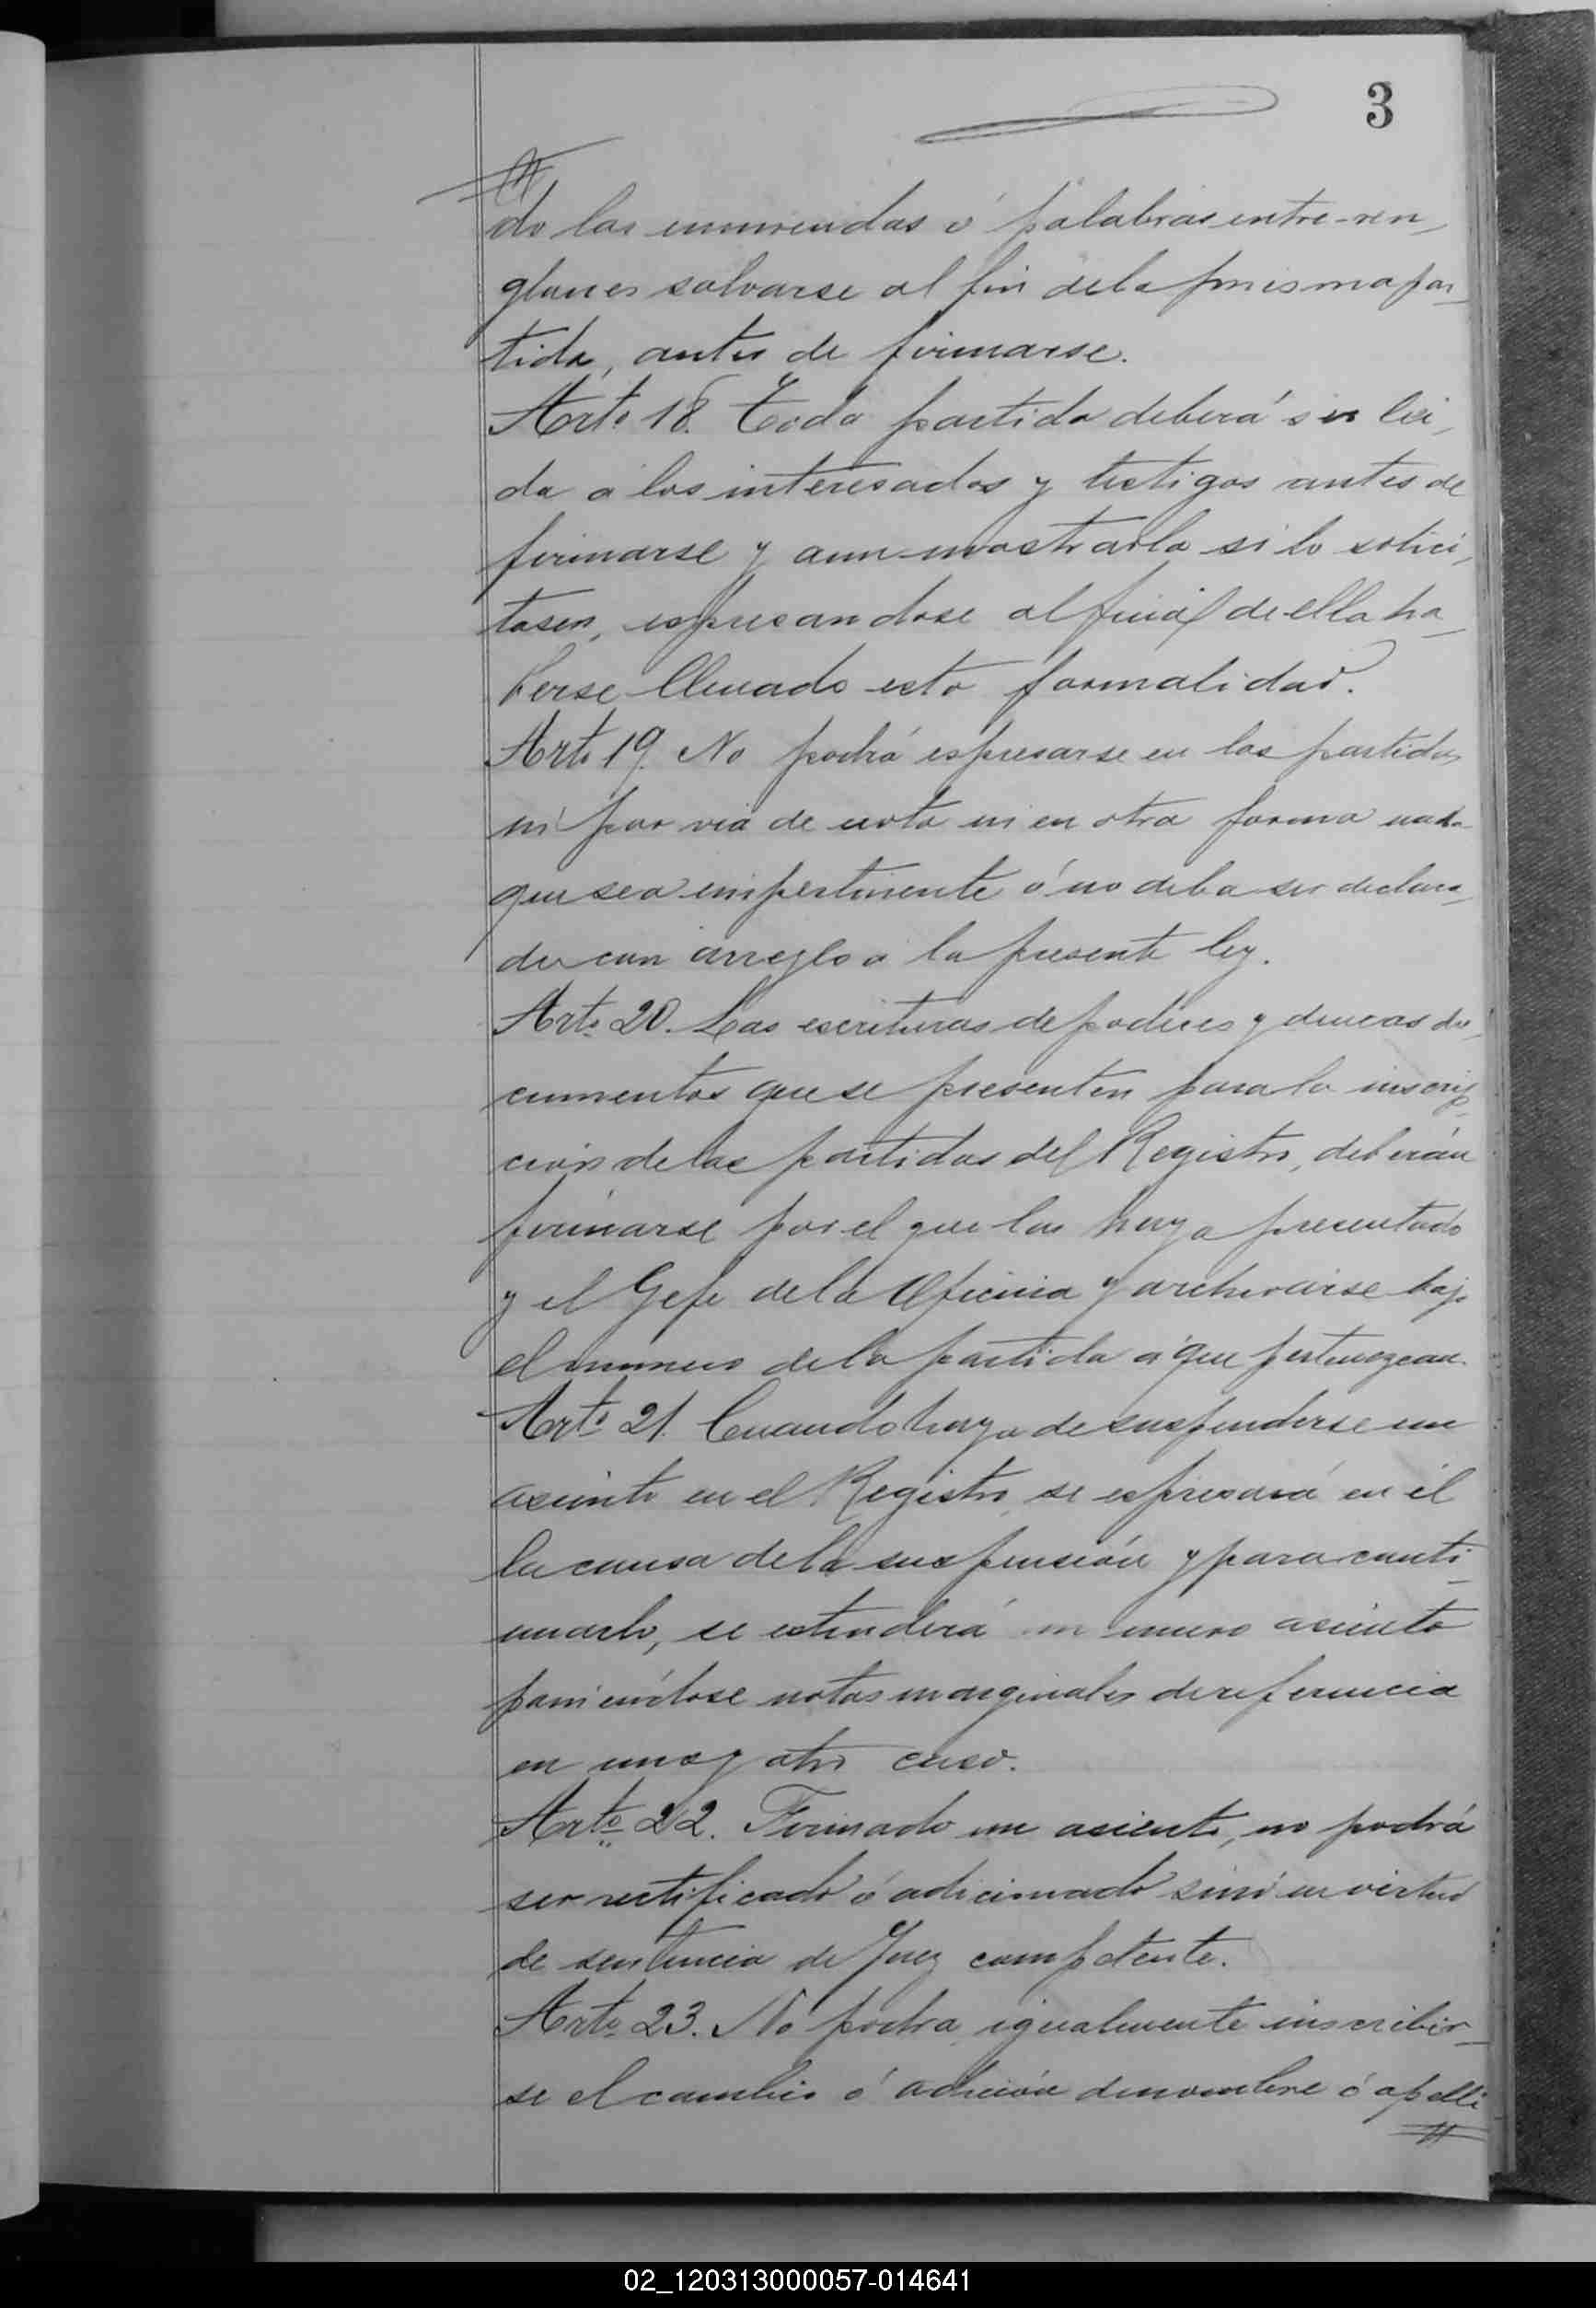 3
do las enmiendas ó palabras entre-ren-
glones salvarse al fin de la misma par-
tida, antes de firmarse.
Arto 18. Toda partida deberá ser lei-
da á los interesados y testigos antes de
firmarse y aun mostrarla si lo solici-
tasen, espresandose al final de ella ha-
berse llenado esta formalidad.
Arto 19. No podrá espresarse en las partidas
ni por via de nota ni en otra forma nada
que sea impertinente ó no deba ser declara-
do con arreglo a la presente ley.
Arto 20. Las escrituras de poderes y demas do-
cumentos que se presenten para la inscrip-
ción de las partidas del Registro, deberán
firmarse por el que los haya presentado
y el Gefe de la Oficina y archivarse bajo
el numero de la partida á que pertenezcan.
Arto 21. Cuando haya de suspenderse un
asiento en el Registro, se espresará en él
la causa de la suspensión y para conti-
nuarlo, se estenderá un nuevo asiento
poniendose notas marginales de referencia
en uno y otro caso.
Arto 22. Firmado un asiento, no podrá
ser rectificado ó adicionado sinó en virtud
de sentencia de Juez competente.
Arto 23. No podra igualmente inscribir-
se el cambio ó adición de nombre ó apelli
02_120313000057-014641